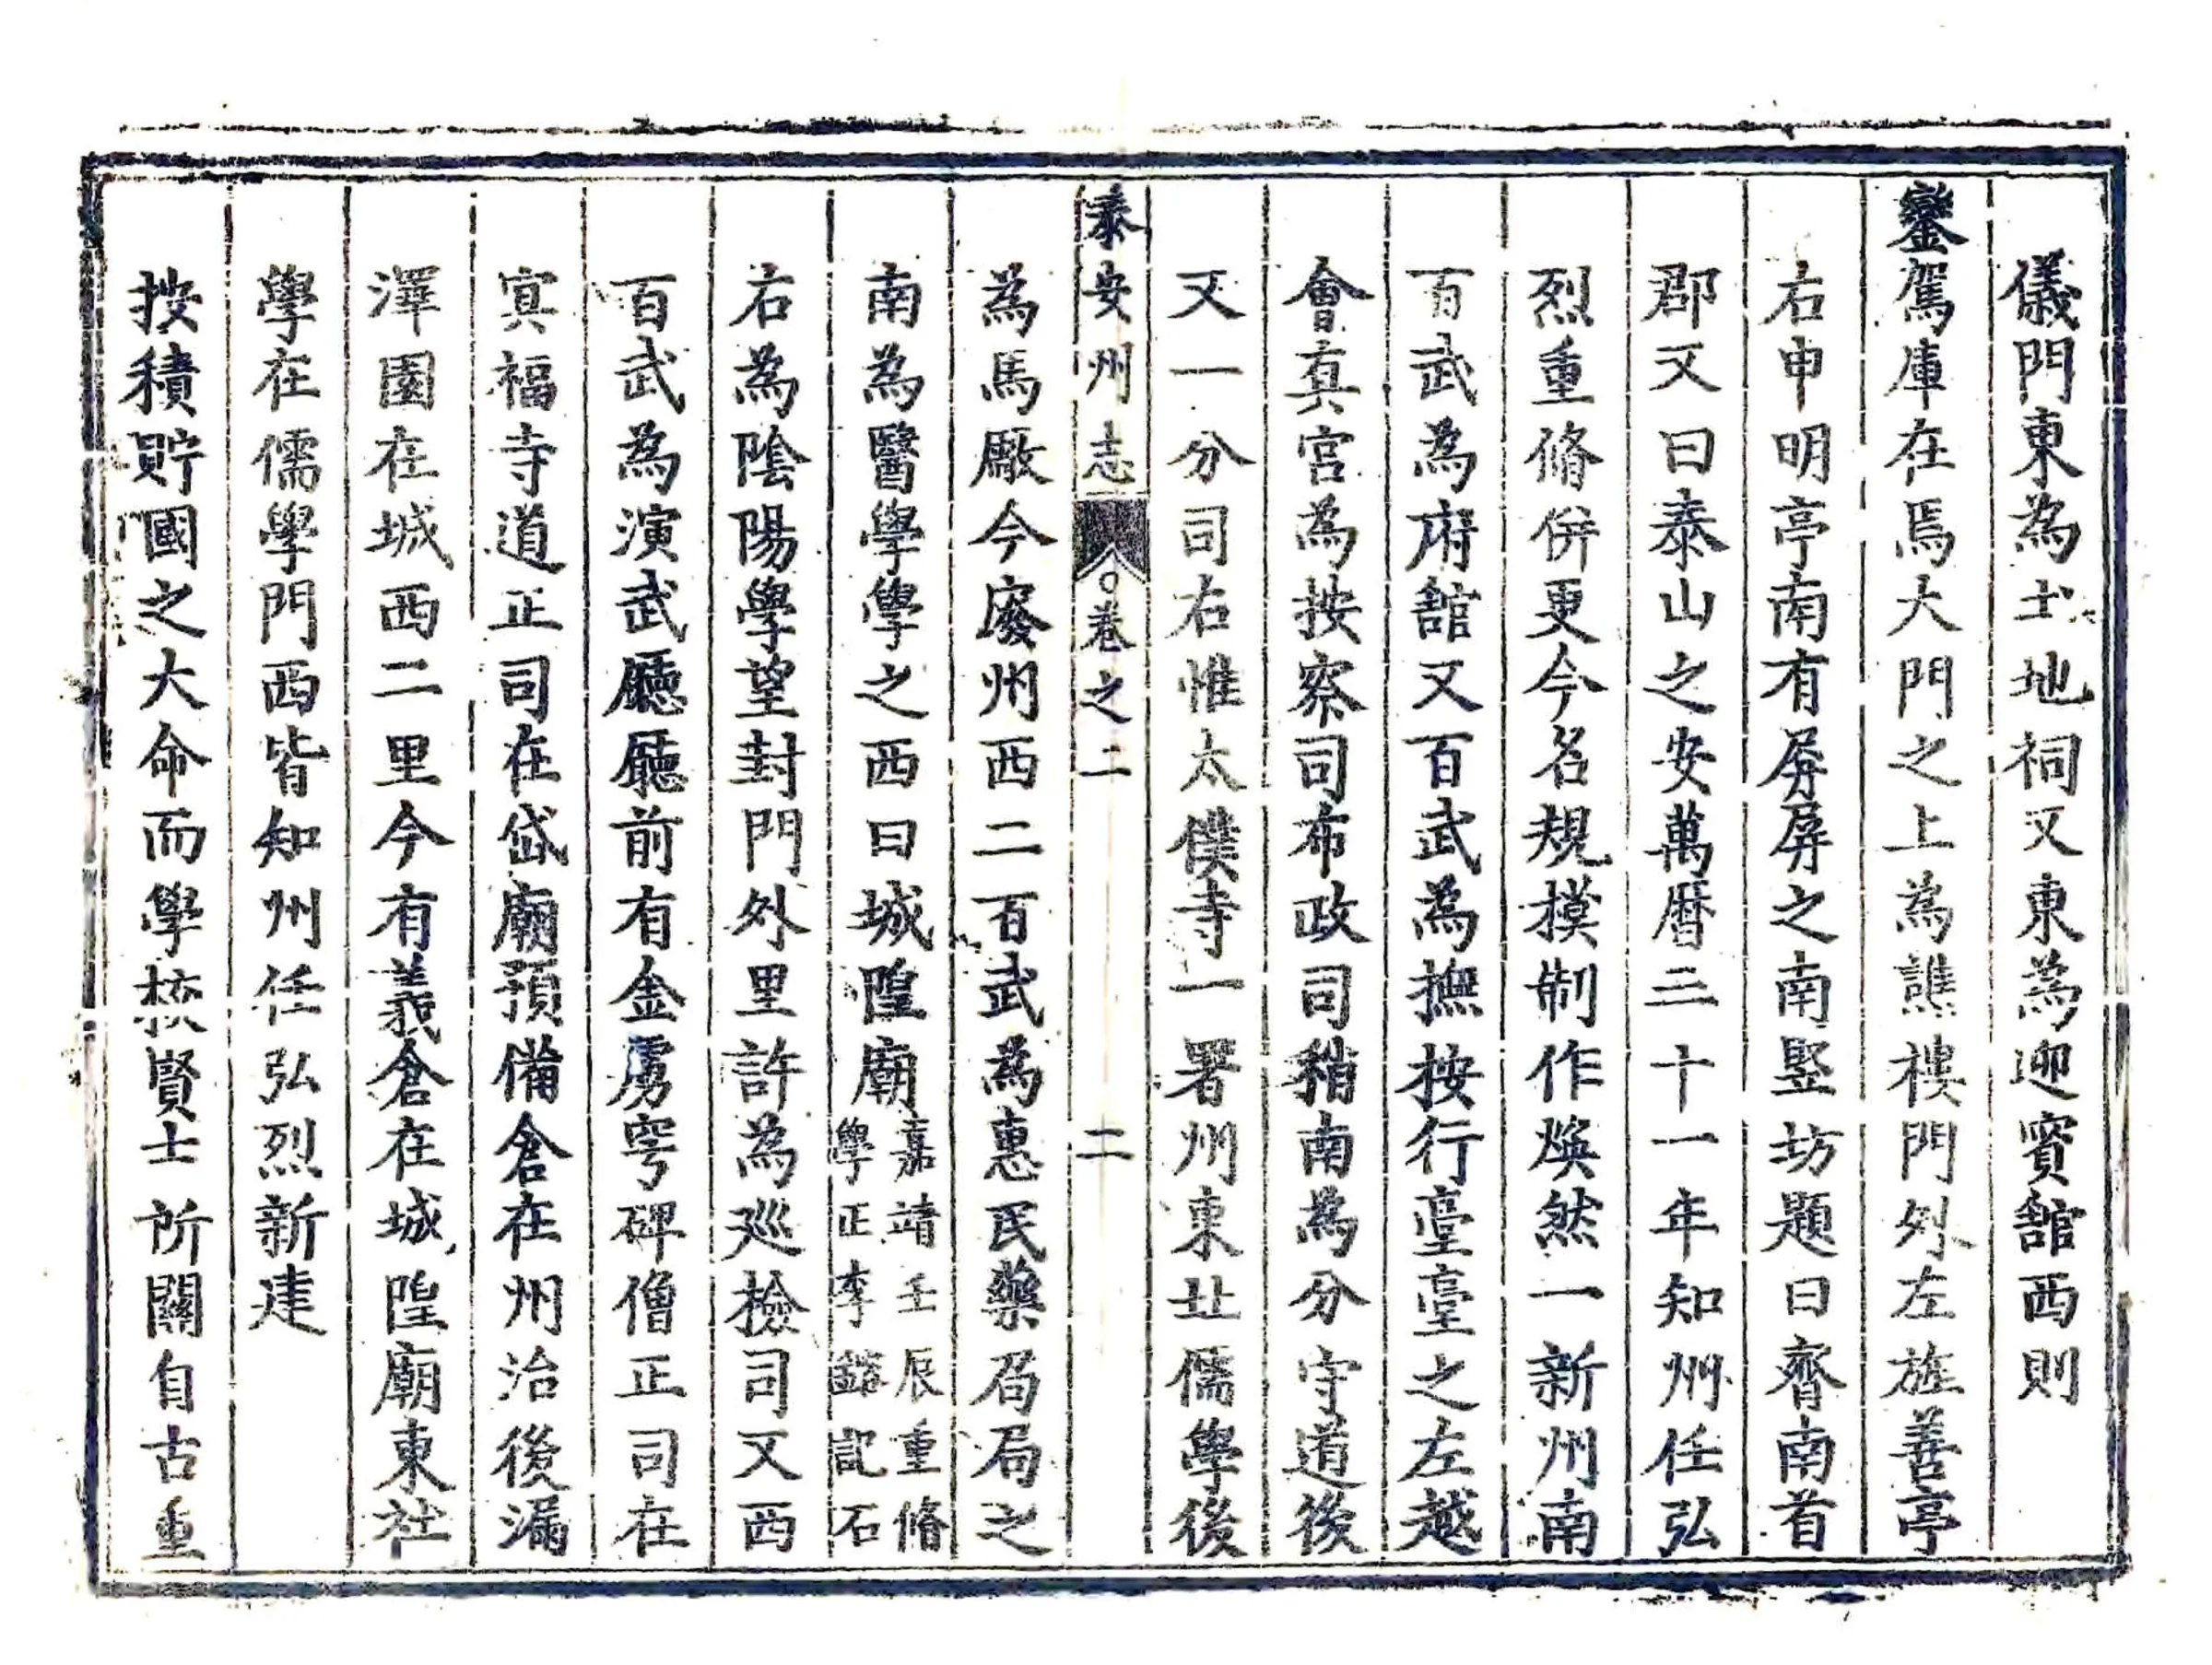 儀門東為土地祠又東為迎賓館西則
鑾駕庫在焉大門之上為譙樓門外左旌善亭
右申明亭南有屏屏之南竪坊題曰齊南首
郡又曰泰山之安萬曆三十一年知州任弘
烈重脩併更今名規模制作煥然一新州南
百武為府館又百武為撫按行臺臺之左越
會真宮為按察司布政司稍南為分守道後
又一分司右惟太僕寺一署州東北儒學後
泰安州志 卷之二 二
為馬厰今廢州西二百武為惠民藥局局之
南為醫學學之西曰城隍廟嘉靖壬辰重脩學正李鎔記石
右為陰陽學望封門外里許為巡檢司又西
百武為演武廳廳前有金虜穹碑僧正司在
冥福寺道正司在岱廟預備倉在州治後漏
澤園在城西二里今有義倉在城隍廟東社
學在儒學門西皆知州任弘烈新建
按積貯國之大命而學校賢士所關自古重